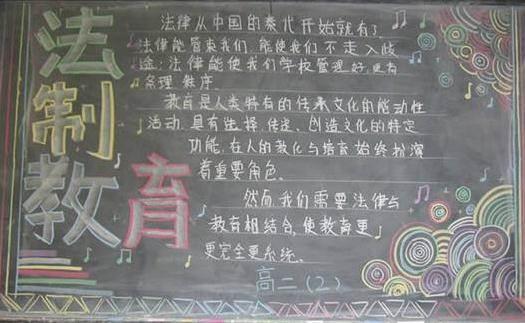 法制教育
法律从中国的秦代开始就有了
法律能管束我们,能使我们不走入歧
途;法律能使我们学校管理好,更有
条理 秩序.
教育是人类特有的传承文化的能动性
活动,具有选择,传递、创造文化的特定
功能,在人的教化与培育始终扮演
着重要角色.
然而,我们需要法律与
教育相结合,使教育更
更完全更系统.
高二(2)